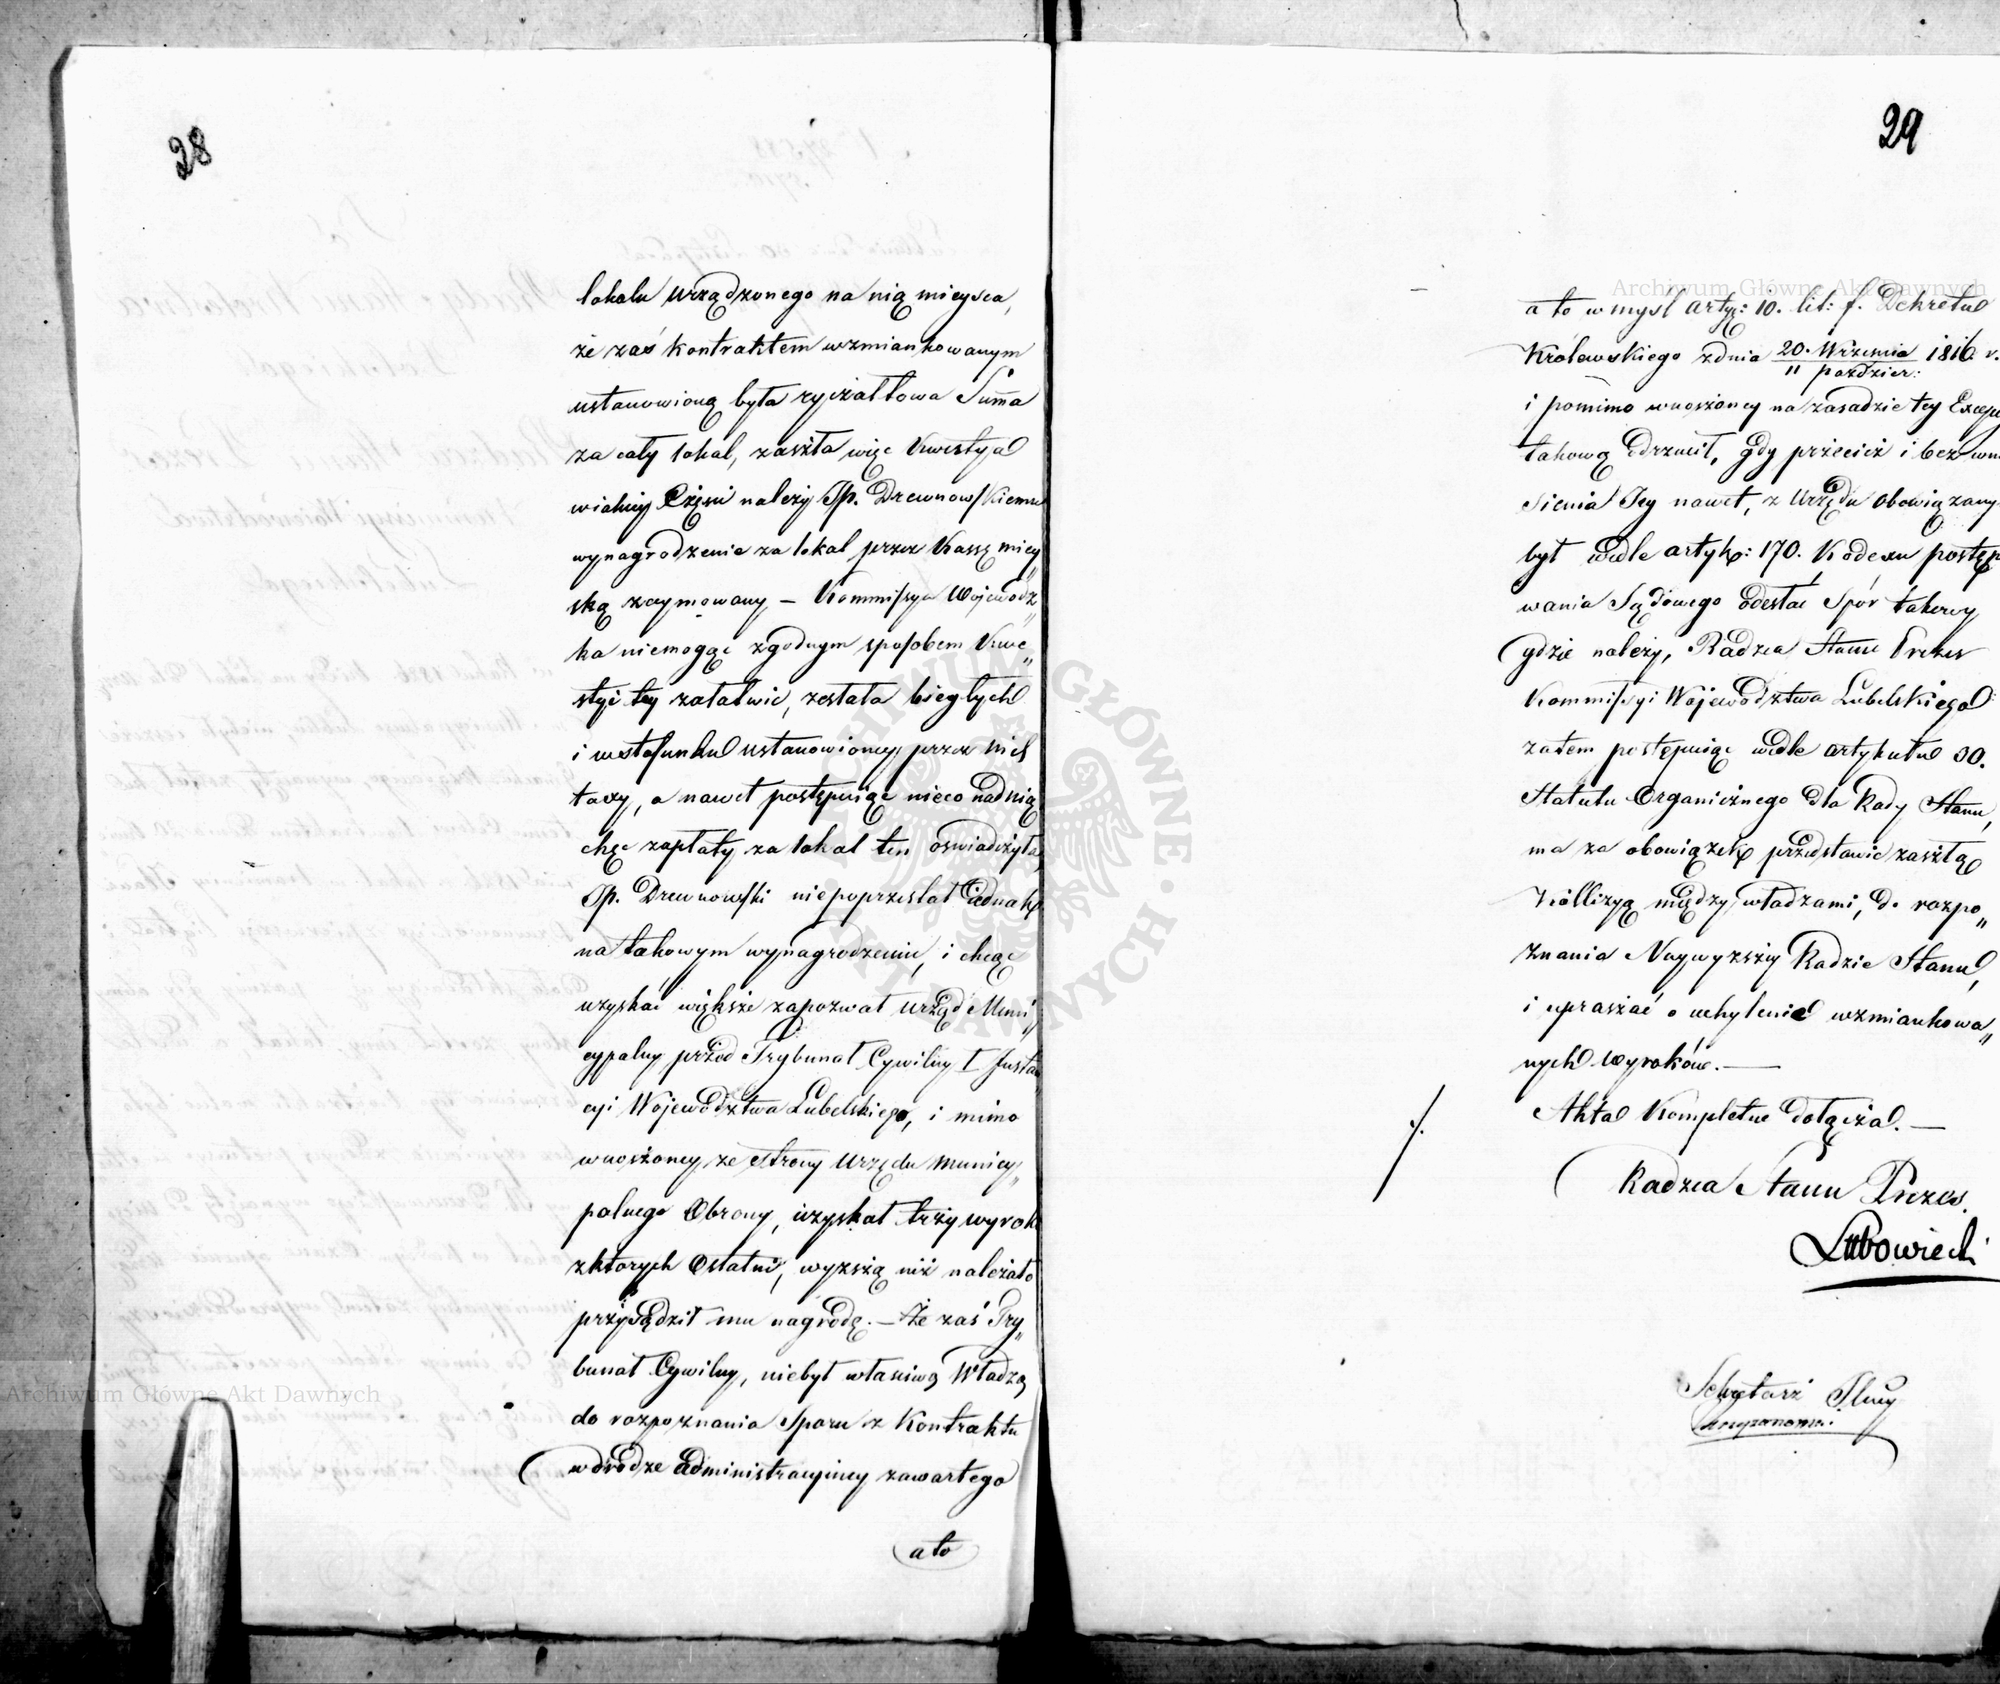 28
lokalu urządzonego na nią mieysca,
że zaś kontraktem wzmiankowanym
ustanowioną była ryczałtowa Summa
za cały lokal, zaszła więc kwestya
wiele należy Jp. Drewnowskiemu
wynagrodzenie za lokal przez Kassę miey„
ską zaymowany — Kommissya Wojewódz„
ka niemogąc zgodnym sposobem kwe„
styi tey załatwić, zesłała biegłych
i w stosunku ustanowioney przez nich
taxy, a nawet postępuiąc nieco nad nią
chęć zapłaty za lokal ten oświadczyła,
Jp. Drewnowski niepoprzestał iednak
na takowym wynagrodzeniu, i chcąc
uzyskać większe zapozwał Urząd Muni„
cypalny przed Trybunał Cywilny I Instan„
cyi Województwa Lubelskiego, i mimo
wnoszoney ze strony Urzędu municy„
palnego Obrony, uzyskał trzy wyroki
z których Ostatni, wyższą niż należało
przysądził mu nagrodę. — Że zaś Try„
bunał Cywilny, niebył właściwą Władzą
do rozpoznania Sporu z Kontraktu
w drodze administracyiney zawartego
a to
29
a to w mysl artyk: 10. lit: f. Dekretu
Królewskiego z dnia 20. Września / 11 paździer: 1816. r.
i pomimo wnoszoney na zasadzie tey
takową odrzucił, gdy przecież i bez wno
sienia Jey nawet, z Urzędu obowiązany
był wedle artyk: 170. Kodexu postępo
wania Sądowego odesłać Spór takowy
gdzie należy, Radzca Stanu Prezes
Kommissyi Województwa Lubelskiego
zatem postępuiąc wedle artykułu 30.
Statutu Organicznego dla Rady Stanu,
ma za obowiązek przedstawić zaszłą
Kollizyą między władzami, do rozpo„
znania Naywyższey Radzie Stanu,
i upraszać o uchylenie wzmiankowa„
nych Wyroków. —
Akta Kompletne dołącza. —
Radzca Stanu Prezes.
Lubowiecki
Sekretarz Jlny
Archiwum Główne Akt Dawnych
Archiwum Główne Akt Dawnych
ARCHIWUM GŁÓWNE AKT DAWNYCH